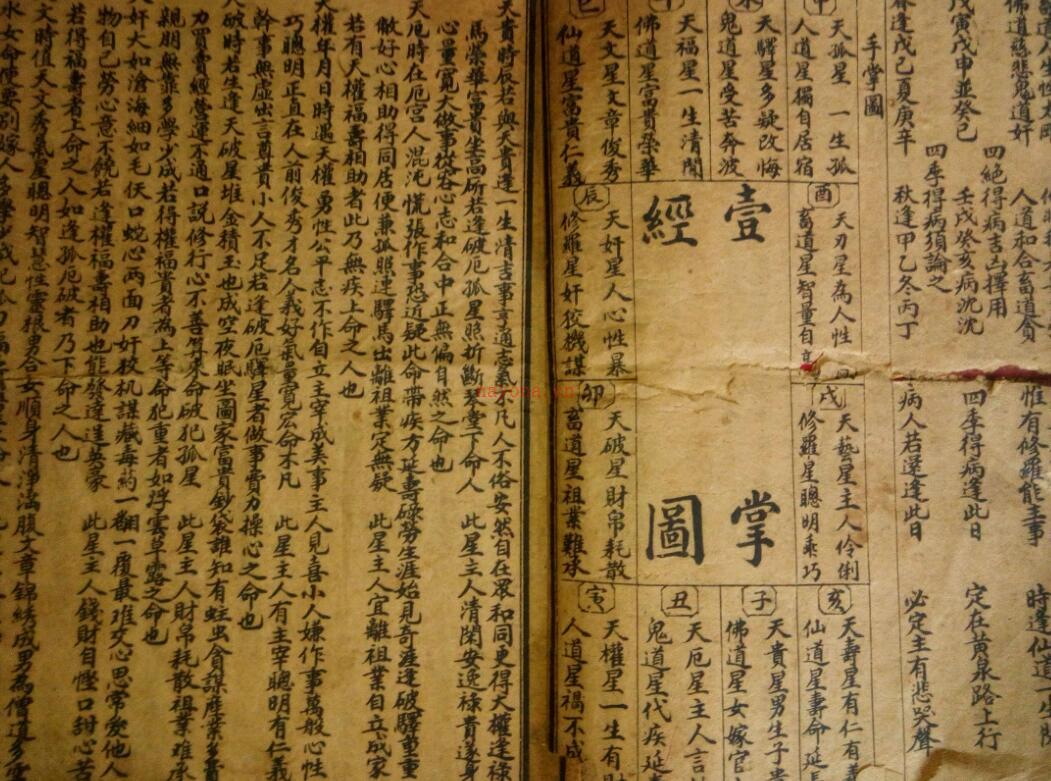 佛道慈悲鬼道奸
人道和合畜道貪
惟有修羅能主事
時逢仙道一生
四絕得病吉凶擇用
戊寅戊申並癸巳
壬戌癸亥病沈沈
四季得病逢此日
定在黃泉路上行
四季得病須論之
春逢戊己夏庚辛
秋逢甲乙冬丙丁
病人若還逢此日
必定主有悲哭聲
手掌圖
申
天孤星一生孤
人道星獨自居宿
未
天驛星多疑改悔
鬼道星受苦奔波
午
天福星一生清閑
佛道星富貴榮華
巳
天文星文章俊秀
仙道星富貴仁義
酉
天刃星為人性
畜道星智量自
壹
掌
經
圖
辰
天奸星人心性暴
修羅星奸狡機謀
戌
天藝星主人伶俐
修羅星聰明乖巧
卯
天破星財帛耗散
畜道星祖業難承
亥
天壽星有仁有
仙道星壽命延
子
天貴星男生子貴
佛道星女嫁官
丑
天厄星主人言
鬼道星代疾延
寅
天權星一生有
人道星福不成
天貴時辰若與天貴逢一生清吉事享通志氣凡人不俗安然自在眾和同更得天權逢祿
馬榮華富貴坐高所若逢破厄孤星照折斷琴堂下命人 此星主人清閑安逸祿貴遂身
心量寬大做事從容心志和合中正無偏自然之命也
天厄時在厄宮人混沌慌張作事恐近疑此命帶疾方延壽碌勞生涯始見奇遲逢破驛重重
做好心相助得同居便兼孤照連驛馬出離祖業定無疑 此星主人宜離祖業自立成家
若有天權福壽相助者此乃無疾上命之人也
天權年月日時遇天權勇性公平志不作自立主宰成美事主人見喜小人嫌作事萬般心性
巧聰明正直在人前俊秀才名人義好氣量寬宏命不凡 此星主人有主宰聰明有仁義
幹事無虛出言尊貴小人不足若逢破厄驛星者做事費力操心之命也
天破時者生逢天破星堆金積玉也成空夜眠坐圖家富貴鈔袋誰知有蛀虫貪謀產業多費
力買賣經營運不通口說修行心不善算來命破犯孤星 此星主人財帛耗散祖業難承
親朋無靠多學少成若得權福貴者為上等命犯重者如浮雲草露之命也
天奸大如滄海細如毛伏口蛇心兩面刀奸狡机謀藏毒約一翻一覆最难交心思常愛他人
物自己勞心意不饒若逢權福壽相助也能發達逞英豪 此星主人錢財自慳口甜心苦
若得福壽者上命之人如逢孤厄破者乃下命之人也
文時值天文秀氣星聰明智慧性靈根男合女順身清淨滿腹文章錦綉成男為僧道多